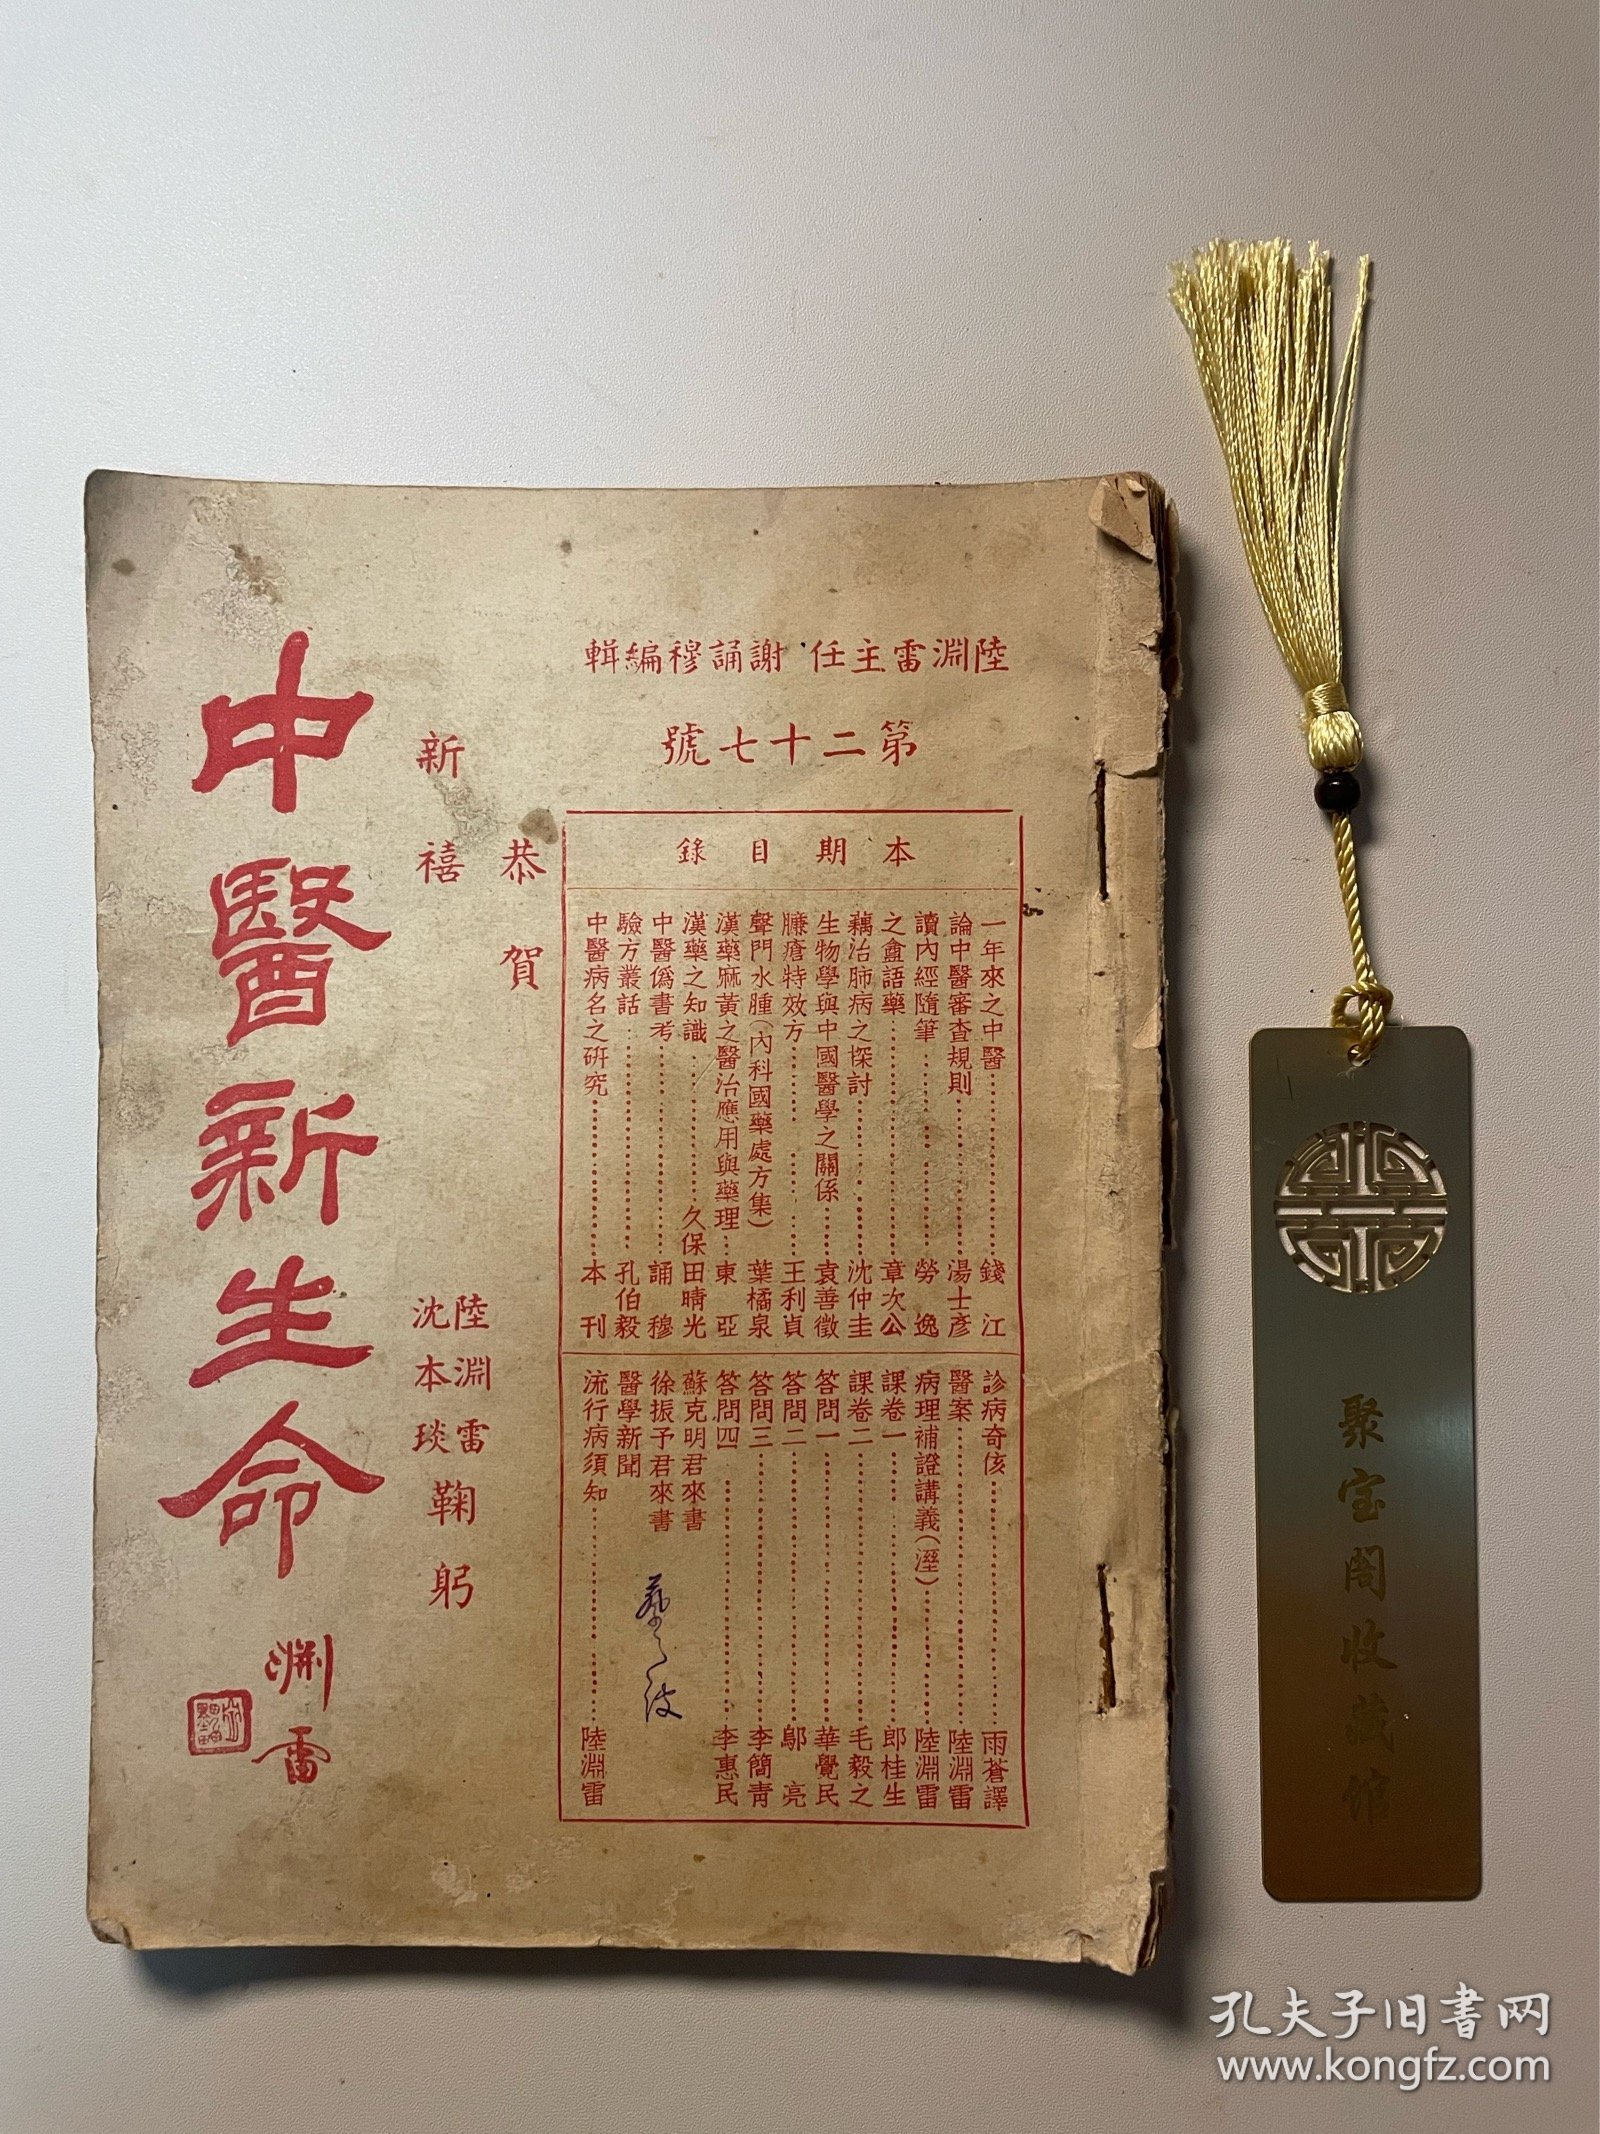 陸淵雷主任 謝誦穆編輯
第二十七號
本期目錄
一年來之中醫……錢江
論中醫審查規則……湯士彥
讀內經隨筆……勞逸
之盦語藥……章次公
藕治肺病之探討……沈仲圭
生物學與中國醫學之關係……袁善徵
臁瘡特效方……王利貞
聲門水腫(內科國藥處方集)葉橘泉
漢藥麻黃之醫治應用與藥理…東亞
漢藥之知識……久保田晴光
中醫僞書考……誦穆
驗方叢話……孔伯毅
中醫病名之硏究……本刊
診病奇侅……雨蒼譯
醫案……陸淵雷
病理補證講義(溼)……陸淵雷
課卷一……郎桂生
課卷二……毛毅之
答問一……華覺民
答問二……鄔亮
答問三……李簡青
答問四……李惠民
蘇克明君來書
徐振予君來書
醫學新聞
流行病須知……陸淵雷
恭賀
新禧
陸淵雷
沈本琰
鞠躬
中醫新生命
淵雷
聚宝阁收藏馆
孔夫子旧书网
www.kongfz.com